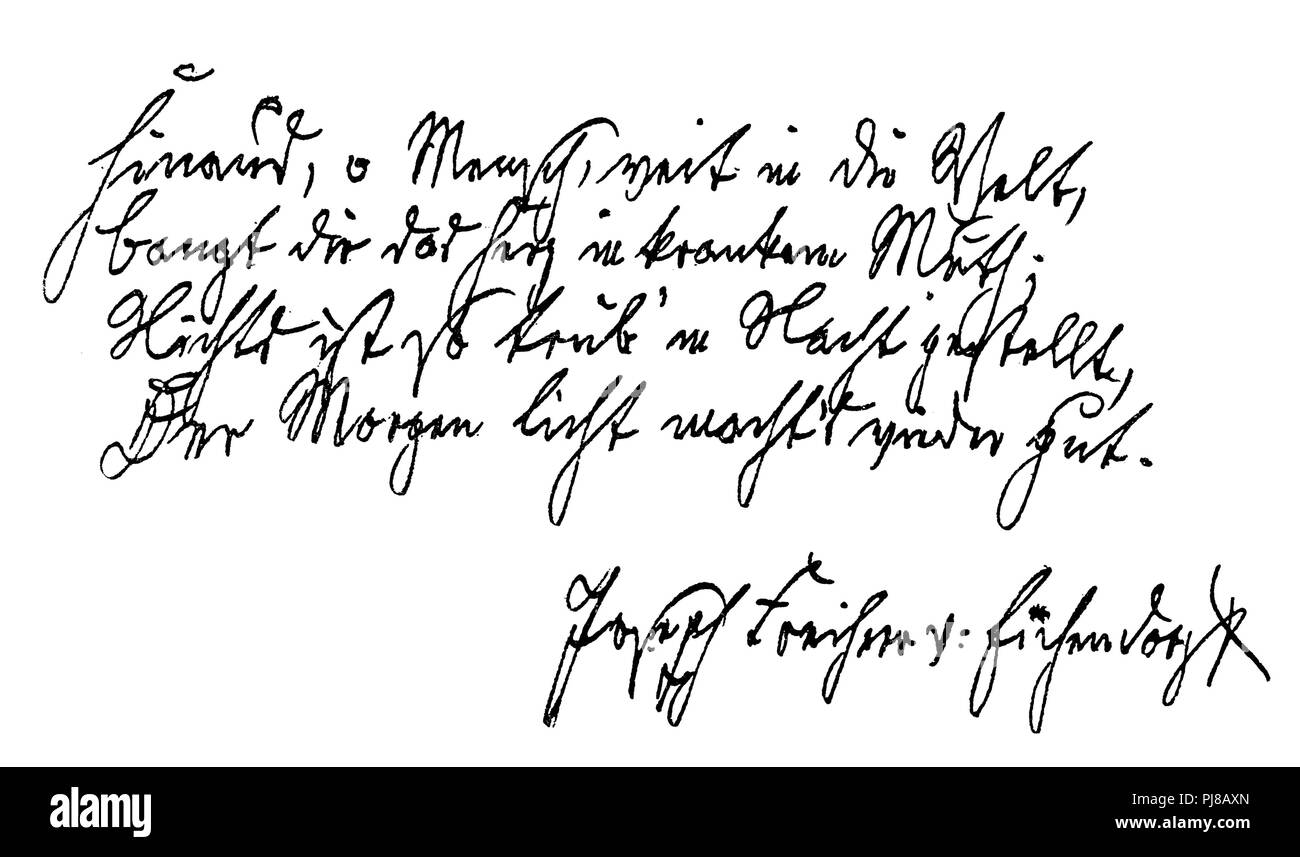 Hinaus, o Mensch, weit in die Welt,
bangt dir das Herz in krankem Muth;
Nichts ist so trüb' in Nacht gestellt,
Der Morgen licht macht's wieder gut.
Joseph Freiherr v. Eichendorff
alamy
Image ID: PJ8AXN
www.alamy.com